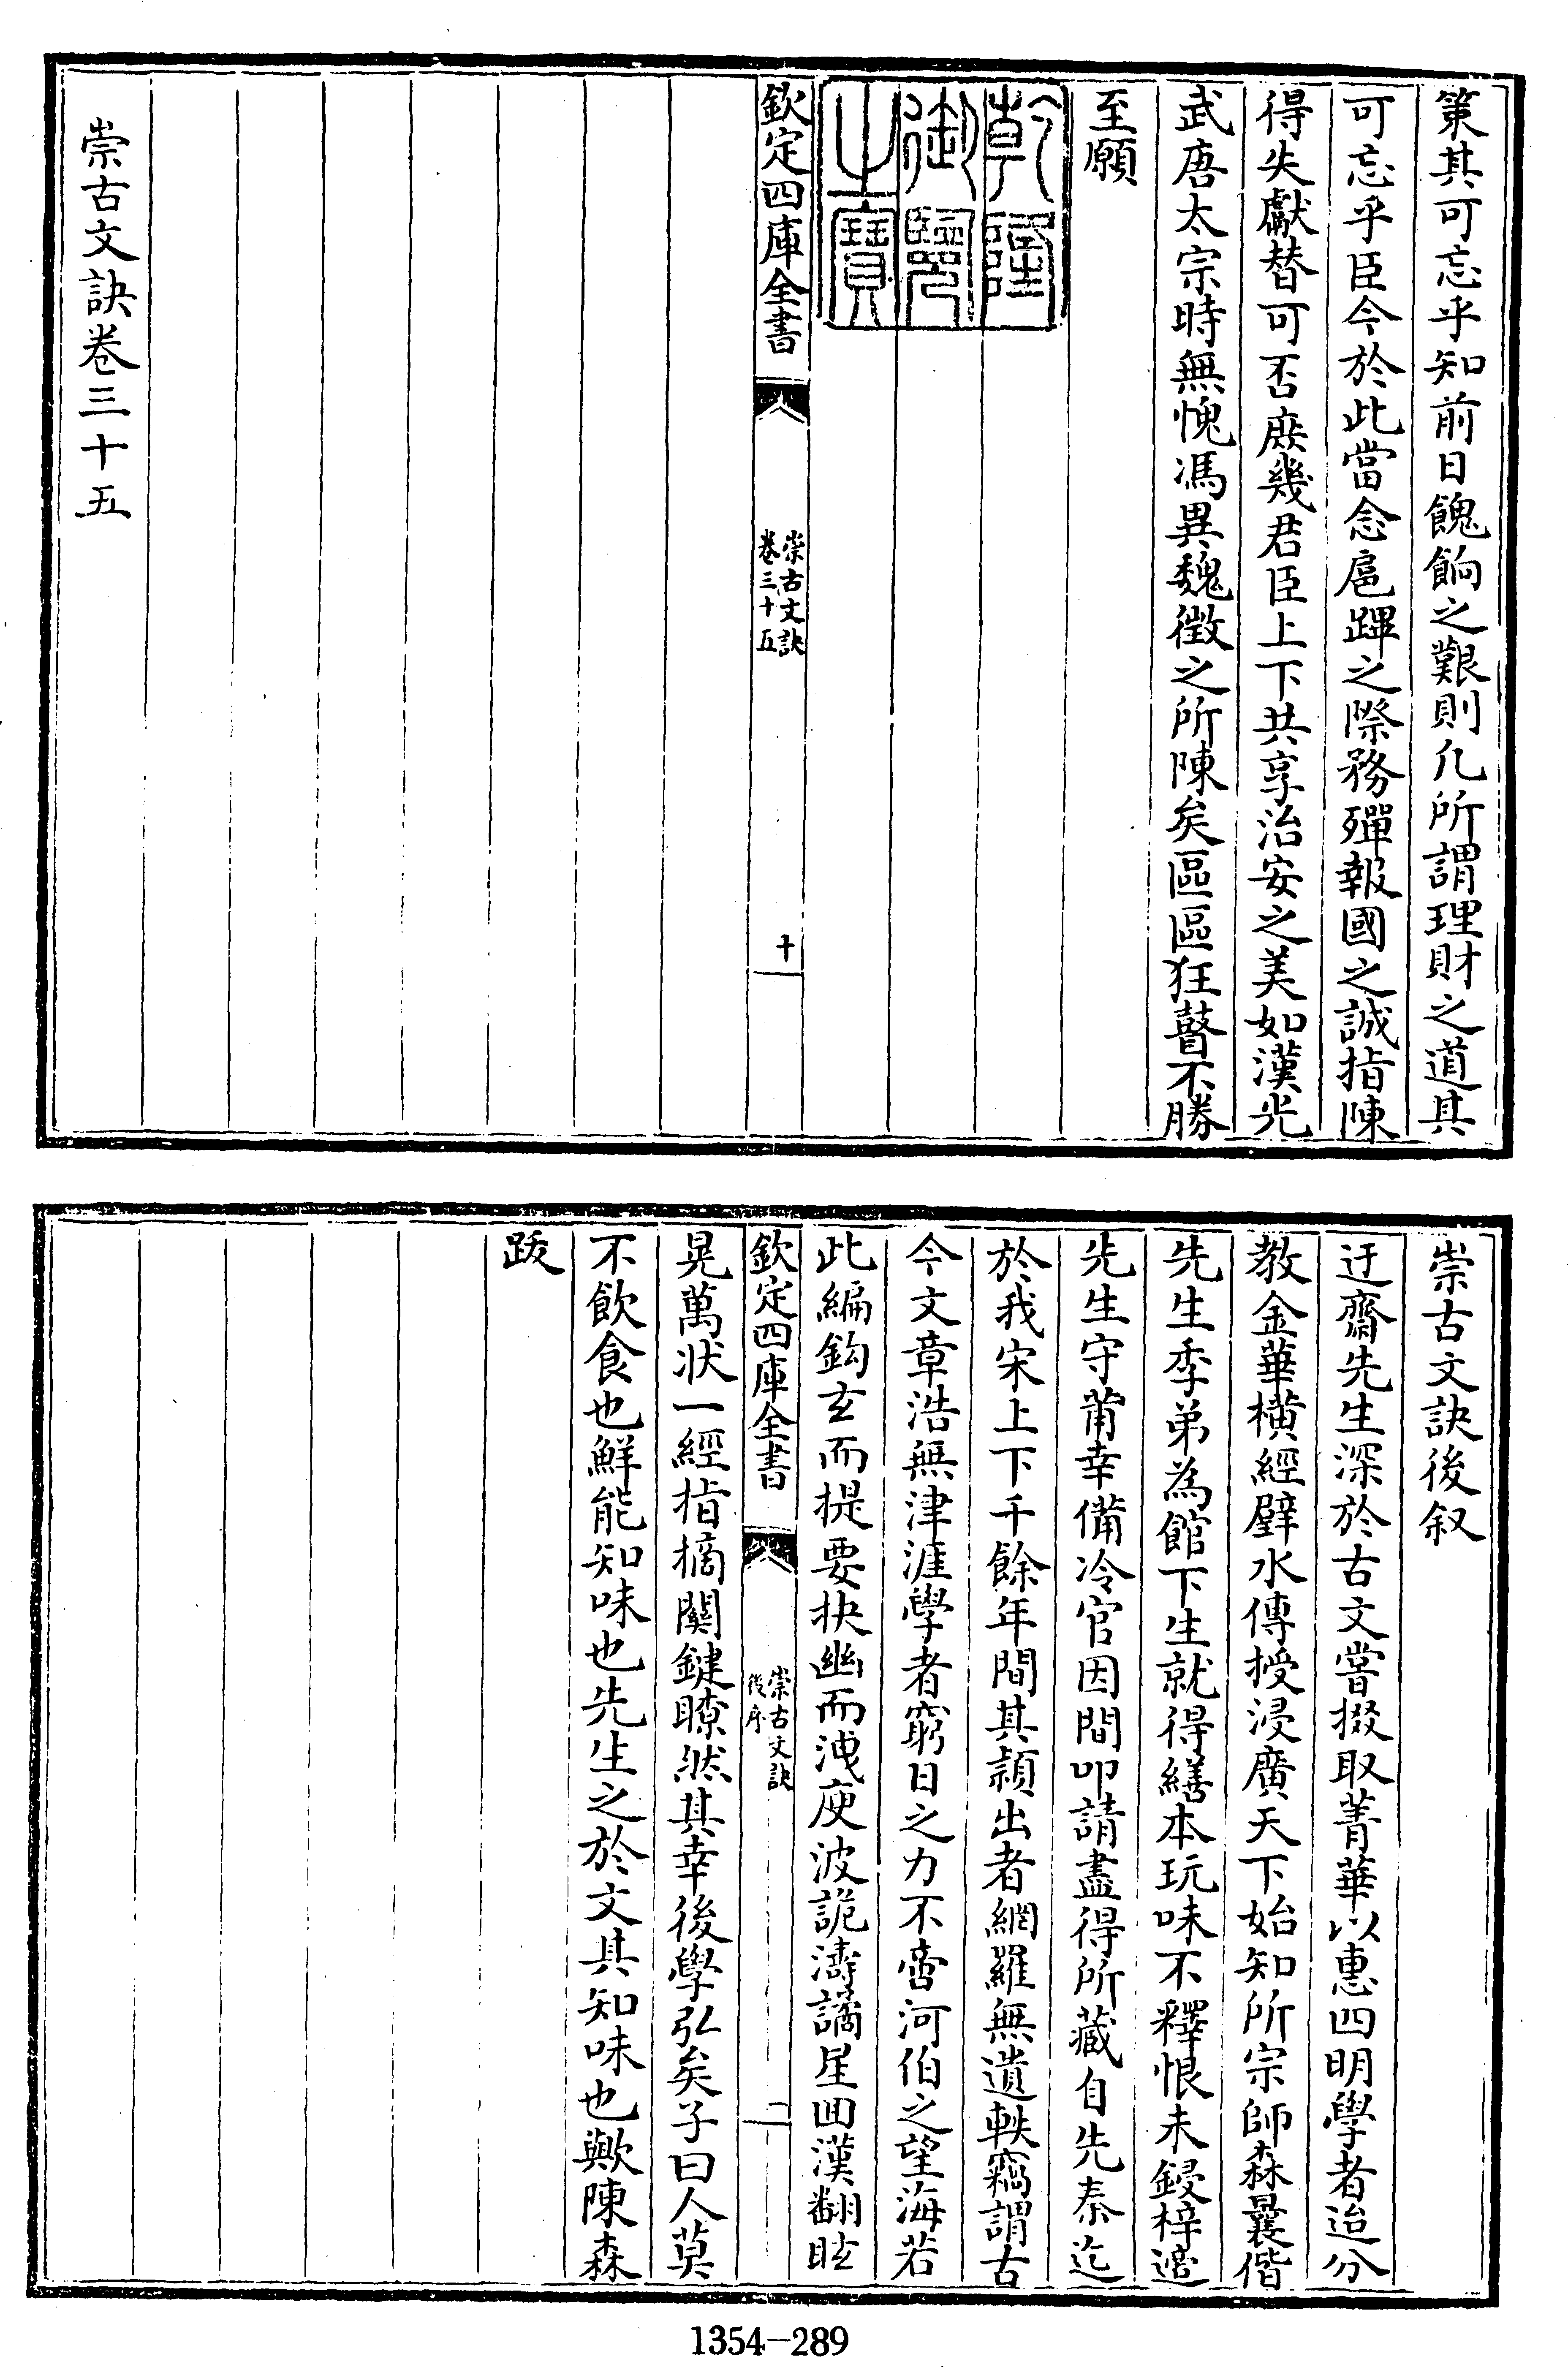 策其可忘乎知前日餽餉之艱則凡所謂理財之道其
可忘乎臣今於此當念扈蹕之際務殫報國之誠指陳
得失獻替可否庶幾君臣上下共享治安之美如漢光
武唐太宗時無愧馮異魏徵之所陳矣區區狂瞽不勝
至願
乾隆
御覽
之寶
欽定四庫全書
崇古文訣
卷三十五
十
崇古文訣卷三十五
崇古文訣後叙
迂齋先生深於古文嘗掇取菁華以惠四明學者迨分
教金華橫經璧水傳授浸廣天下始知所宗師森曩偕
先生季弟為館下生就得繕本玩味不釋恨未鋟梓適
先生守莆幸備冷官因間叩請盡得所藏自先秦迄
於我宋上下千餘年間其頴出者網羅無遺軼竊謂古
今文章浩無津涯學者窮日之力不啻河伯之望海若
此編鈎玄而提要抉幽而洩庾波詭濤譎星回漢翻眩
欽定四庫全書
崇古文訣
後序
一
晃萬狀一經指摘關鍵瞭然其幸後學弘矣子曰人莫
不飲食也鮮能知味也先生之於文其知味也歟陳森
跋
1354-289